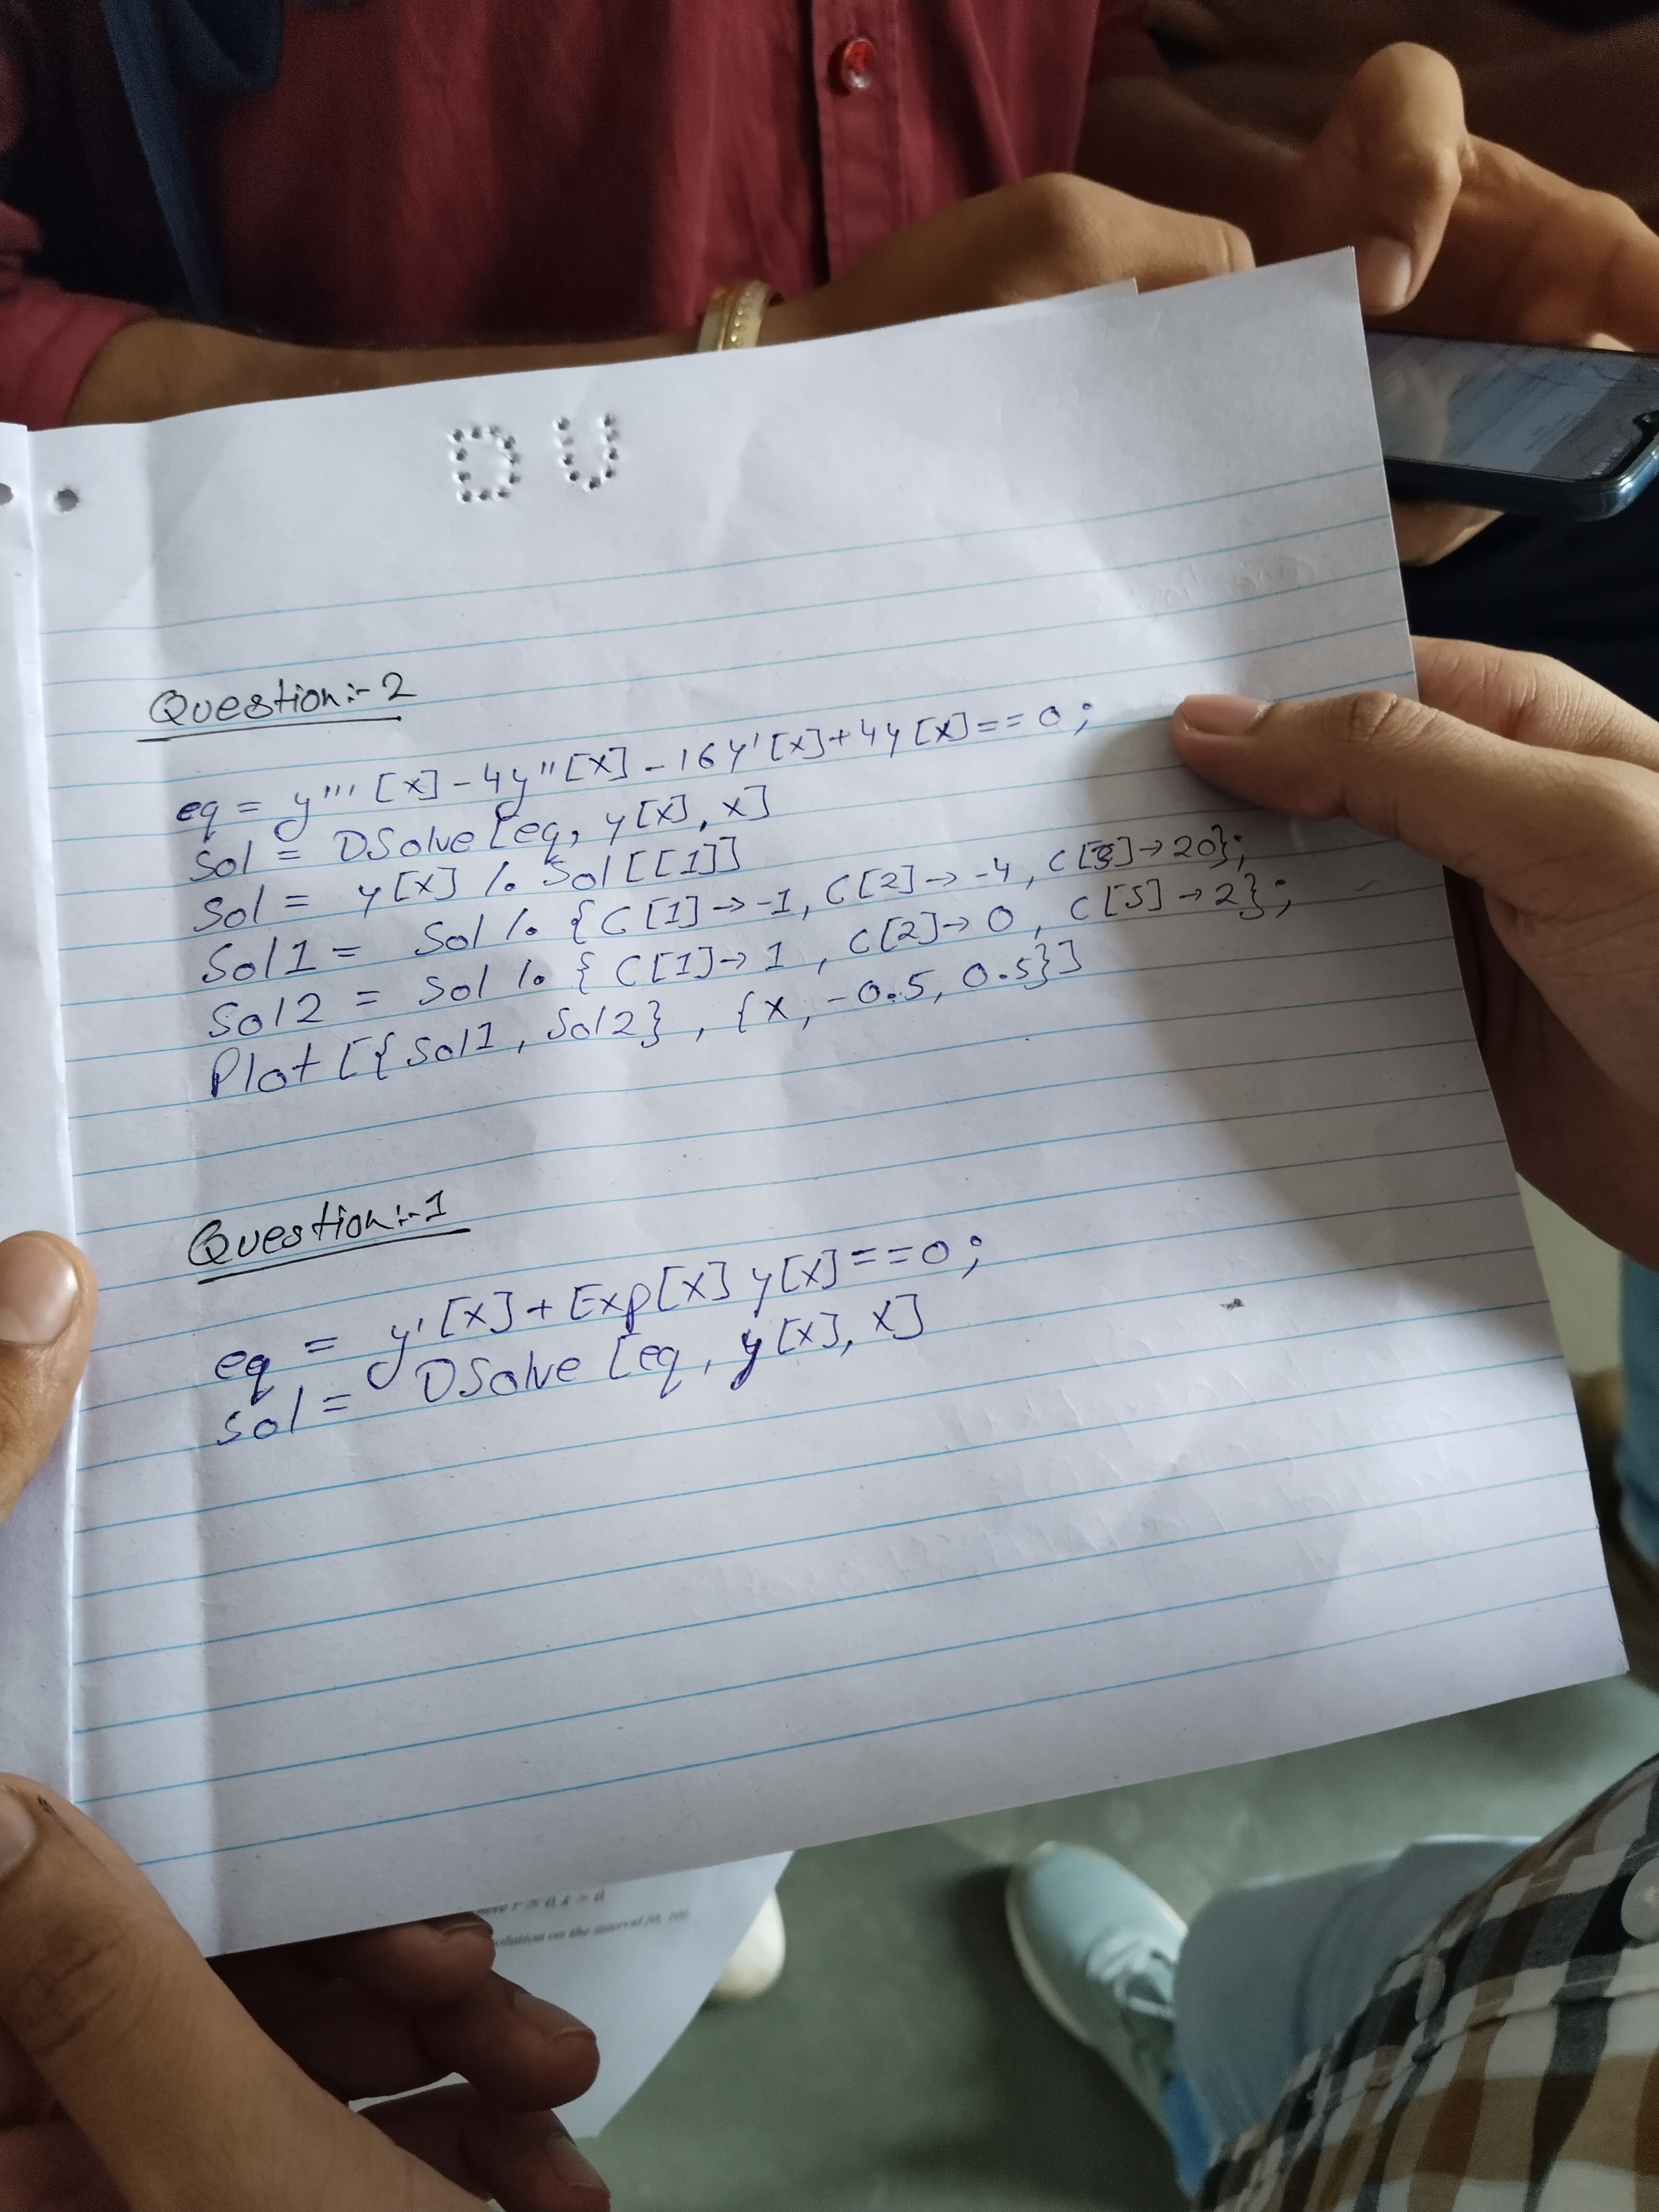 DU
Question:-2
eq = y''' [x] - 4y'' [x] - 16 y' [x] + 4y [x] == 0 ;
Sol = DSolve [eq, y[x], x]
Sol = y[x] /. Sol [[1]]
Sol1 = Sol /. {C[1]→-1, C[2]→-4, C[3]→20};
Sol2 = Sol /. {C[1]→1, C[2]→0, C[5]→2};
Plot [{Sol1, Sol2}, {x, -0.5, 0.5}]
Question:-1
eq = y' [x] + Exp[x] y[x] == 0 ;
Sol = DSolve [eq, y[x], x]
olution on the interval [0, 10].